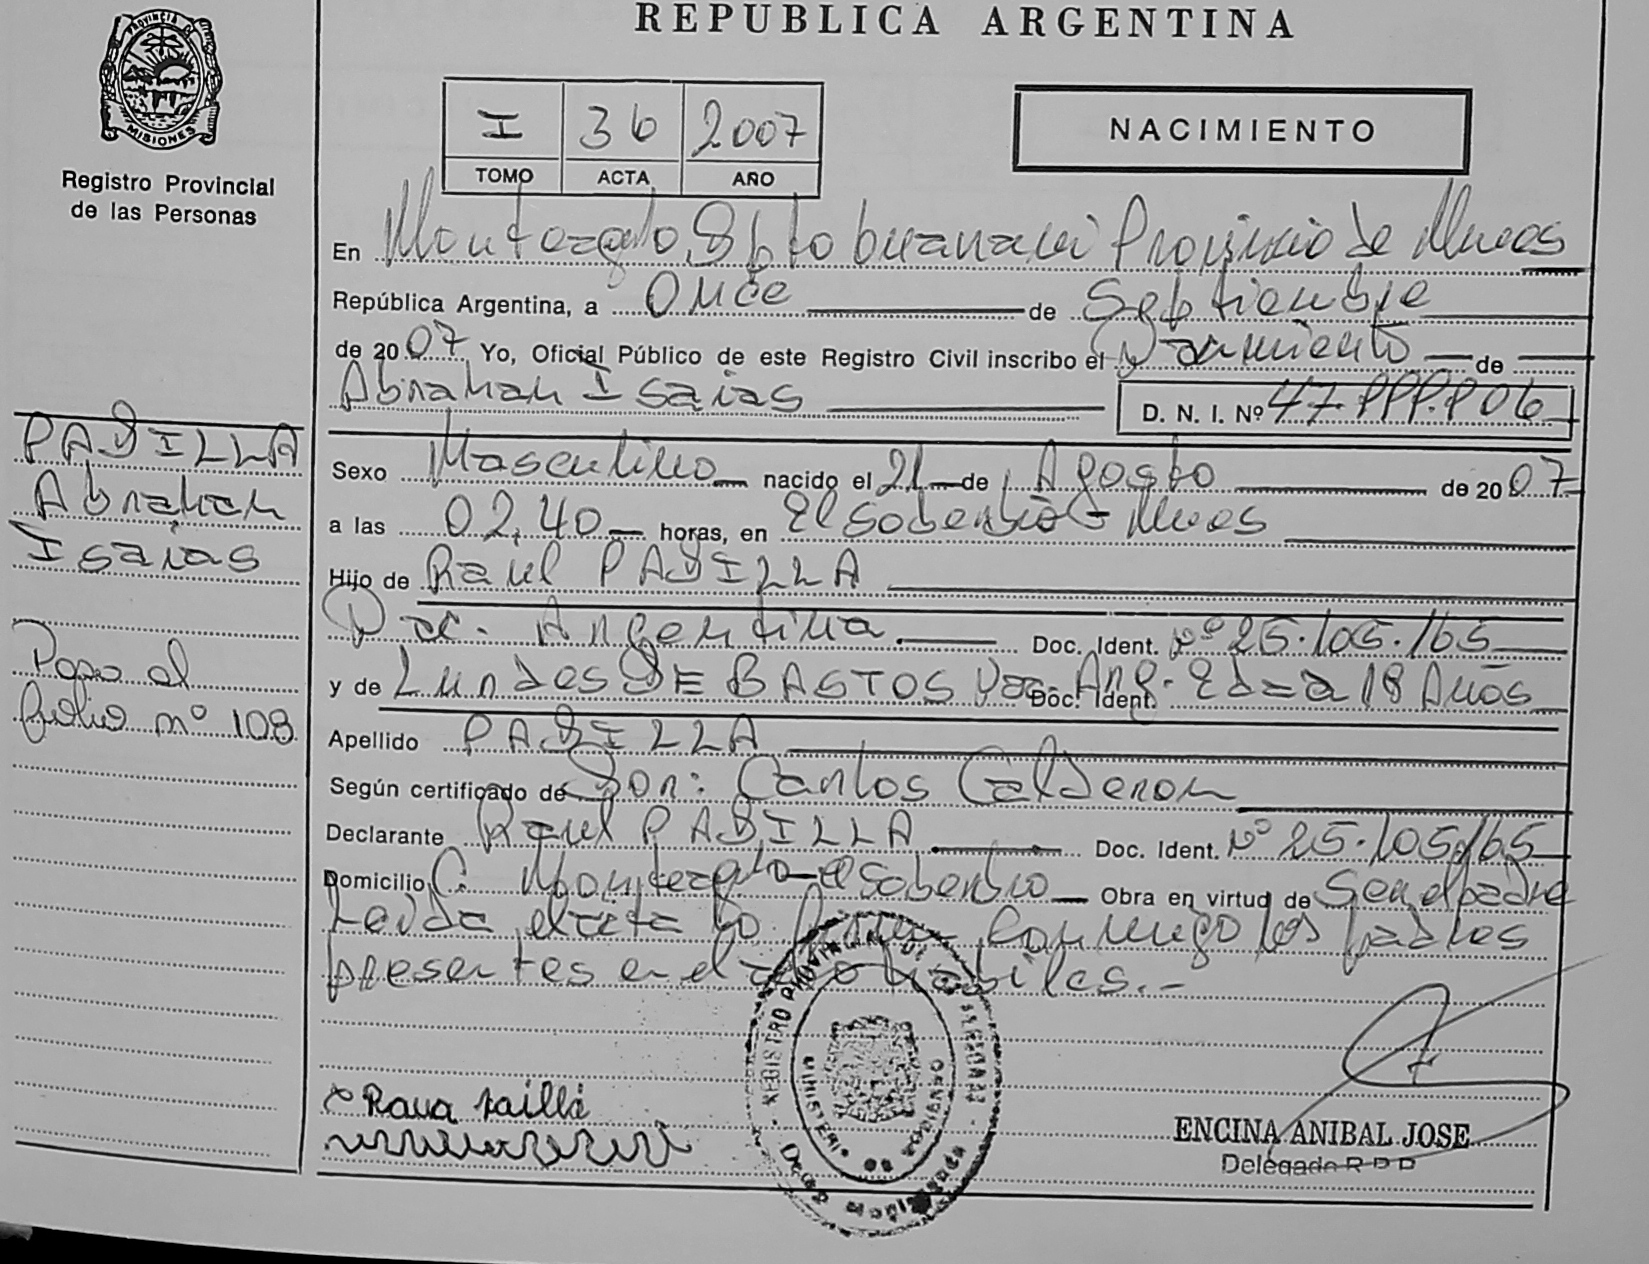 REPUBLICA ARGENTINA
PROVINCIA DE
MISIONES
Registro Provincial
de las Personas
I 36 2007
TOMO ACTA AÑO
NACIMIENTO
En Monteagudo Dpto Guarani Provincia de Mnes
República Argentina, a Once de Septiembre
de 2007 Yo, Oficial Público de este Registro Civil inscribo el Nacimiento de
Abraham Isaias D. N. I. Nº 47.
Sexo Masculino nacido el 21 de Agosto de 2007
a las 02,40 horas, en El Soberbio - Mnes
Hijo de Raul PADILLA
Nac. Argentina Doc. Ident. Nº 25.105.165
y de Lurdes DE BASTOS Nac. Arg. Doc. Ident. Edad 18 Años
Apellido PADILLA
Según certificado de Dor: Carlos Calderon
Declarante Raul PADILLA Doc. Ident. Nº 25.105.165
Domicilio C. Monteagudo El Soberbio Obra en virtud de Ser el padre
Leída el acta la firman conmigo los padres
presentes en dias habiles.-
PADILLA
Abraham
Isaias
Paso al
folio nº 108
REGISTRO PROVINCIAL DE LAS PERSONAS
MINISTERIO DE GOBIERNO
ENCINA ANIBAL JOSE
Delegado R P P